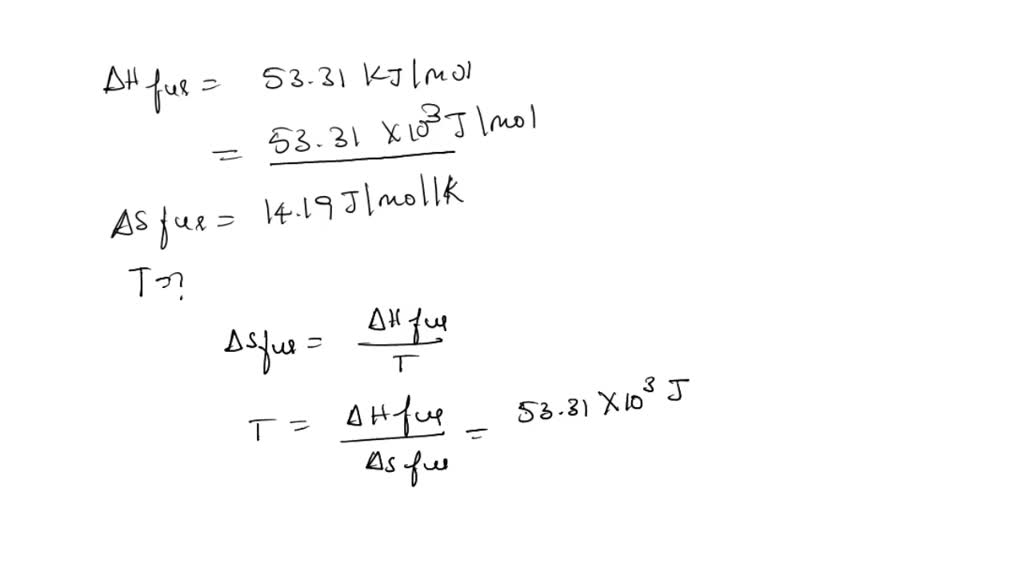 ΔH fus = 53.31 KJ|mol
= 53.31 ×10³ J|mol
ΔS fus = 14.19 J|mol|K
T=?
ΔSfus = ΔH fus
T
T = ΔH fus = 53.31 ×10³ J
ΔS fus